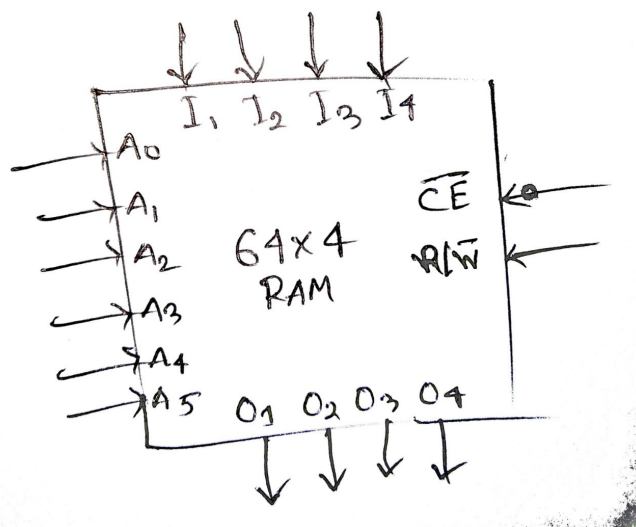 I1 I2 I3 I4
A0
A1
A2
A3
A4
A5
64x4
RAM
C̅E̅
R/W̅
O1 O2 O3 O4